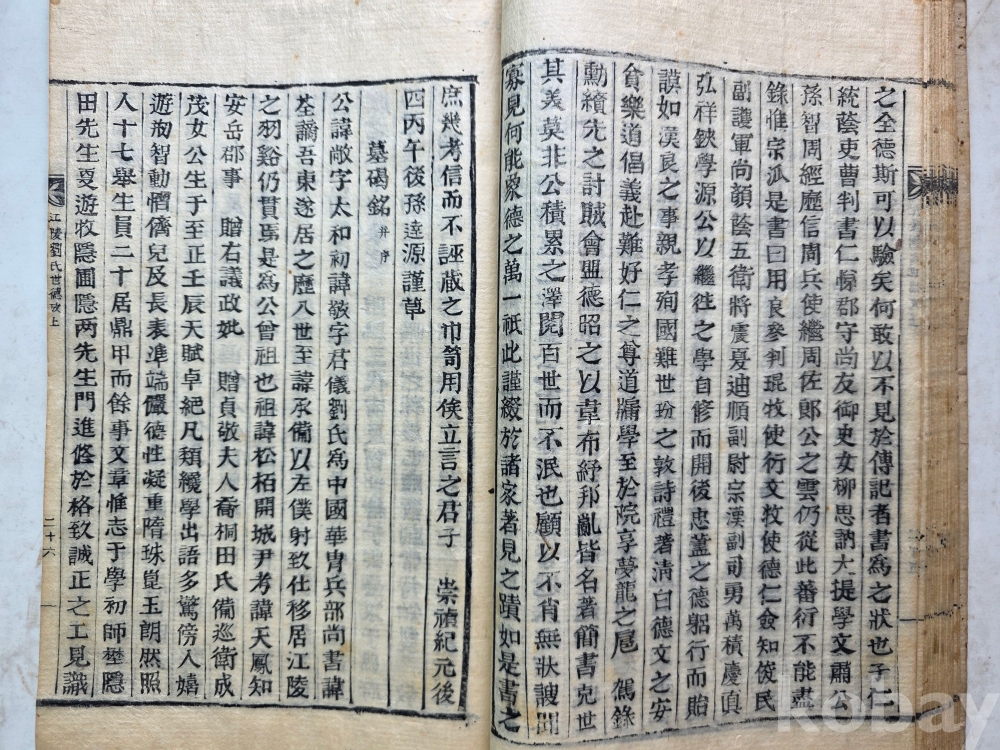 之全德斯可以驗矣何敢以不見於傳記者書爲之狀也子仁
統蔭吏曹判書仁悌郡守尚友御史女柳思訥大提學文肅公
孫智周經歷信周兵使繼周佐郞公之雲仍從此蕃衍不能盡
錄惟宗派是書曰用良參判琨牧使衍文牧使德仁僉知俊民
副護軍尚顔蔭五衛將震夏迪順副尉宗漢副司勇萬積慶眞
弘祥鉠學源公以繼往之學自修而開後忠藎之德躬行而貽
謨如漢良之事親孝殉國難世玢之敦詩禮著淸曰德文之安
貧樂道倡義赴難好仁之尊道牖學至於院享夢龍之扈 駕錄
勳纘先之討賊會盟德昭之以韋布紓邦亂皆名著簡書克世
其義莫非公積累之澤閱百世而不泯也顧以不肖無狀謏聞
寡見何能發德之萬一祇此謹綴於諸家著見之蹟如是書之
庶幾考信而不誣蔵之巾笥用俟立言之君子 崇禎紀元後
四丙午後孫逵源謹草
墓碣銘 并序
公諱敞字太和初諱敬字君儀劉氏爲中國華胄兵部尚書諱
荃謫吾東遂居之歷八世至諱承備以左僕射致仕移居江陵
之羽谿仍貫焉是爲公曾祖也祖諱松栢開城尹考諱天鳳知
安岳郡事 贈右議政妣 贈貞敬夫人喬桐田氏備巡衛成
茂女公生于至正壬辰天賦卓絕凡類纔學出語多驚傍人嬉
遊夙智動慴儕兒及長表準端儼德性凝重隋珠崑玉朗然照
人十七舉生員二十居鼎甲而餘事文章惟志于學初師埜隱
田先生夏遊牧隱圃隱两先生門進修於格致誠正之工見識
江陵劉氏世德攷上
二十六
kobay